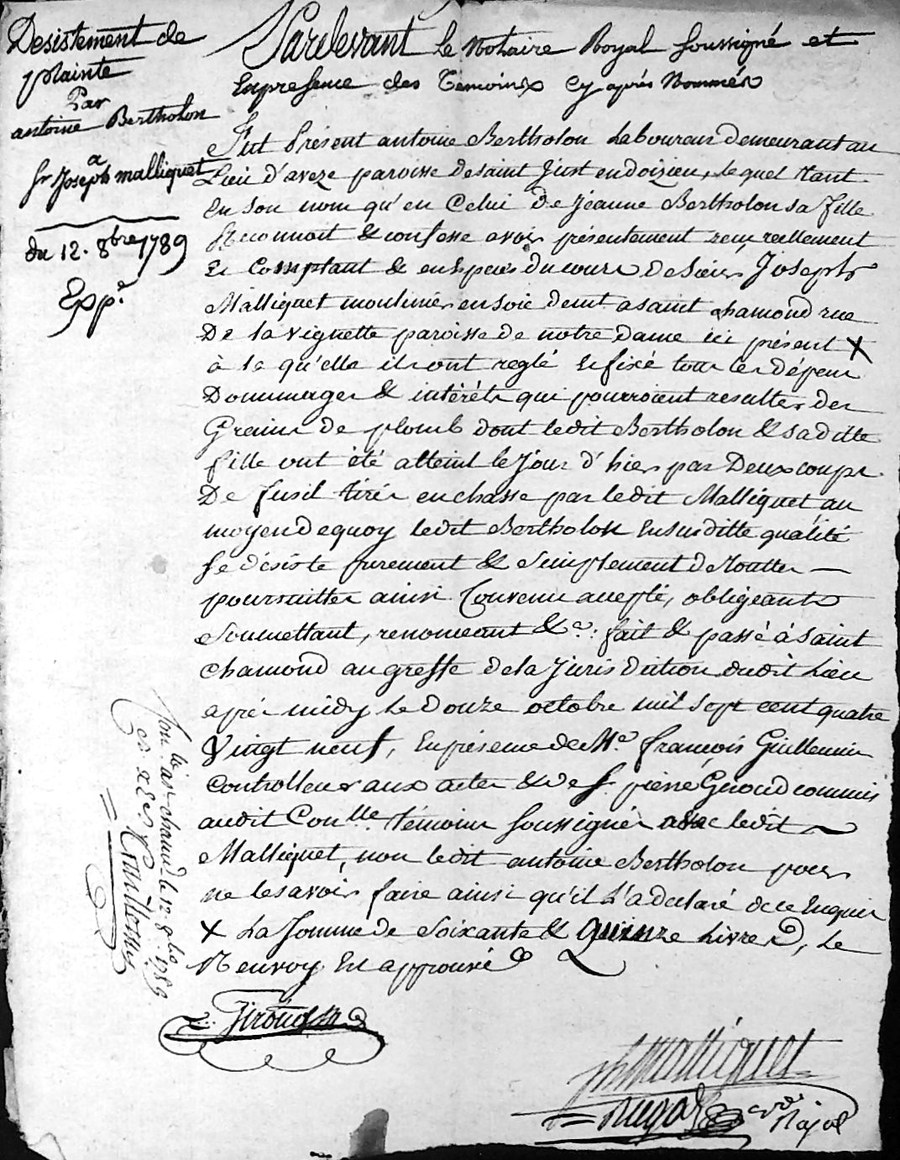 Desistement de
plainte
Par
antoine Bertholon
a
Sr Joseph Malliquet
du 12. 8bre 1789
Exp.e
Pardevant le Notaire Royal soussigné et
En presence des temoins cy après Nommés
Fut Présent antoine Bertholon Laboureur demeurant au
Lieu d'aveze paroisse de saint Just en doizieu, lequel tant
En son nom qu'en Celui de jeanne Bertholon sa fille
Reconnoit & confesse avoir présentement reçu reellement
Et Comptant & en Especes du cours de Sieur Joseph
Malliquet moulinier en soie demt a saint chamond rue
De la vignette paroisse de notre Dame ici présent X
à la qu'elle ils ont reglé & fixé tous les dépens
Dommages & intérêts qui pourroient resulter des
Grains de plomb dont ledit Bertholon & sa ditte
fille ont été atteint le Jour d'hier par Deux coups
De fusil tirés en chasse par ledit Malliquet au
moyen de quoy ledit Bertholon En susditte qualité
se désiste purement & Simplement de toutes
poursuittes ainsi Convenu accepté, obligeants
Soumettant, renonceant &a: fait & passé à saint
chamond au greffe de la Jurisdiction dudit Lieu
après midy Le Douze octobre mil sept cent quatre
Vingt neuf, En présence de Me françois Guillemin
Controlleur aux actes & de sr pierre Giroud commis
audit Conlle. témoins soussignés avec ledit
Malliquet, non ledit antoine Bertholon pour
ne le savoir faire ainsi qu'il L'a declaré de ce Enquis
X La Somme de Soixante & Quinze Livres, le
Renvoy Est approuvé
Giroud
Malliquet
Con.lle a st chamd. le 12. 8bre 1789
Guillemin